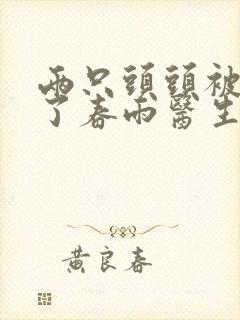 兩只頭頭被
了春雨醫生
黃良春